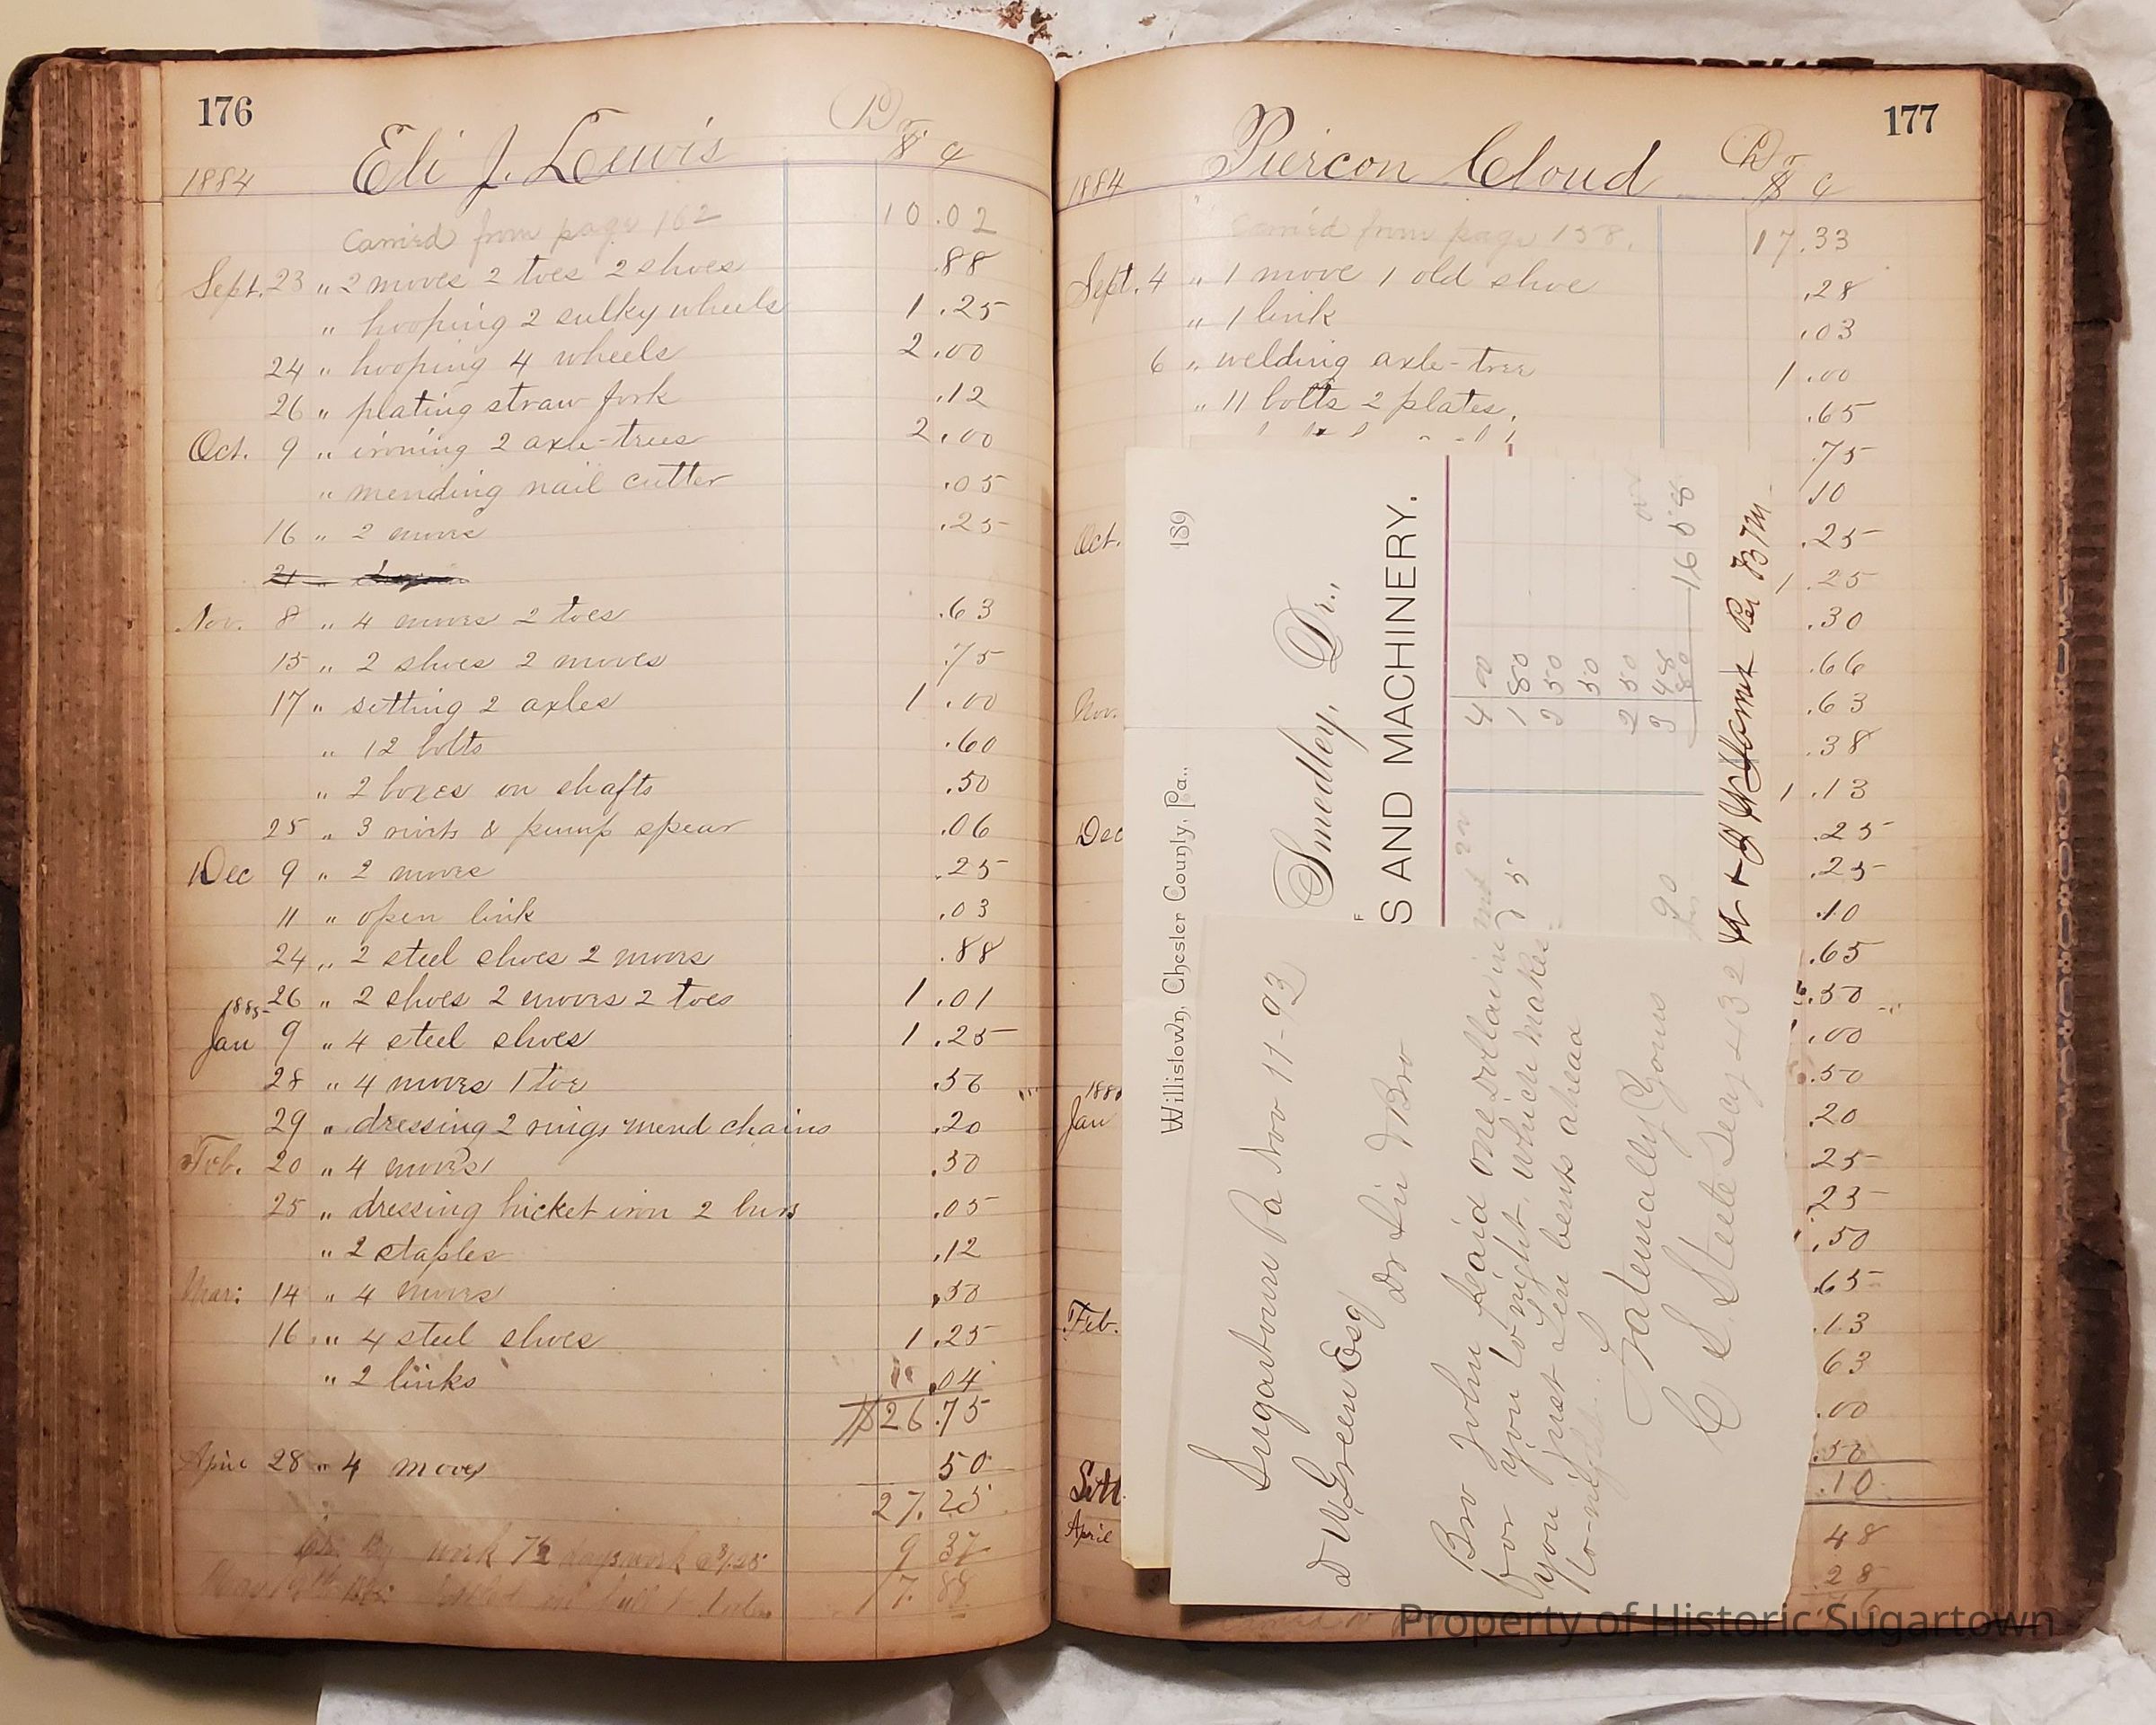 176
Eli J. Lewis Dr
1884 $ ¢
Carried from page 162 10.02
Sept. 23 " 2 moves 2 toes 2 shoes .88
" hooping 2 sulky wheels 1.25
24 " hooping 4 wheels 2.00
26 " plating straw fork .12
Oct. 9 " ironing 2 axle-trees 2.00
" mending nail cutter .05
16 " 2 moves .25
21 "
Nov. 8 " 4 moves 2 toes .63
15 " 2 shoes 2 moves .75
17 " setting 2 axles 1.00
" 12 bolts .60
" 2 boxes on shafts .50
25 " 3 rivits & pump spear .06
Dec 9 " 2 moves .25
11 " open link .03
24 " 2 steel shoes 2 moves .88
26 " 2 shoes 2 moves 2 toes 1.01
1885
Jan 9 " 4 steel shoes 1.25
28 " 4 moves 1 toe .56
29 " dressing 2 rings mend chains .20
Feb. 20 " 4 moves .50
25 " dressing hicket iron 2 .05
" 2 staples .12
Mar: 14 " 4 moves .50
16 " 4 steel shoes 1.25
" 2 links .04
$26.75
April 28 " 4 moves 50
27.25
work 7½ days work 9 37
17. 88
177
Piercon Cloud Dr
1884 $ ¢
Carried from page 158. 17.33
Sept. 4 " 1 move 1 old shoe .28
" 1 link .03
6 " welding axle-tree 1.00
" 11 bolts 2 plates. .65
.75
.10
Oct. .25
1.25
.30
.66
Nov. .63
.38
1.13
Dec .25
.25
.10
.65
.50
.00
.50
Jan .20
.25
.25
.50
.65
Feb. .13
63
.00
.50
Settl .10
April 48
.28
Willistown, Chester County, Pa., 189
Smedley, Dr.,
S AND MACHINERY.
4 00
1 80
2 50
50
2 50
3 48
80
16 58
Per B M
Sugartown Pa Nov 11-93
D W Green Esq
Dr Sir & Bro
Bro John paid one Dollar
for you to night, which makes
you just ten cents ahead
to-night.
Fraternally Yours
C S Steele Secy 432
Property of Historic Sugartown